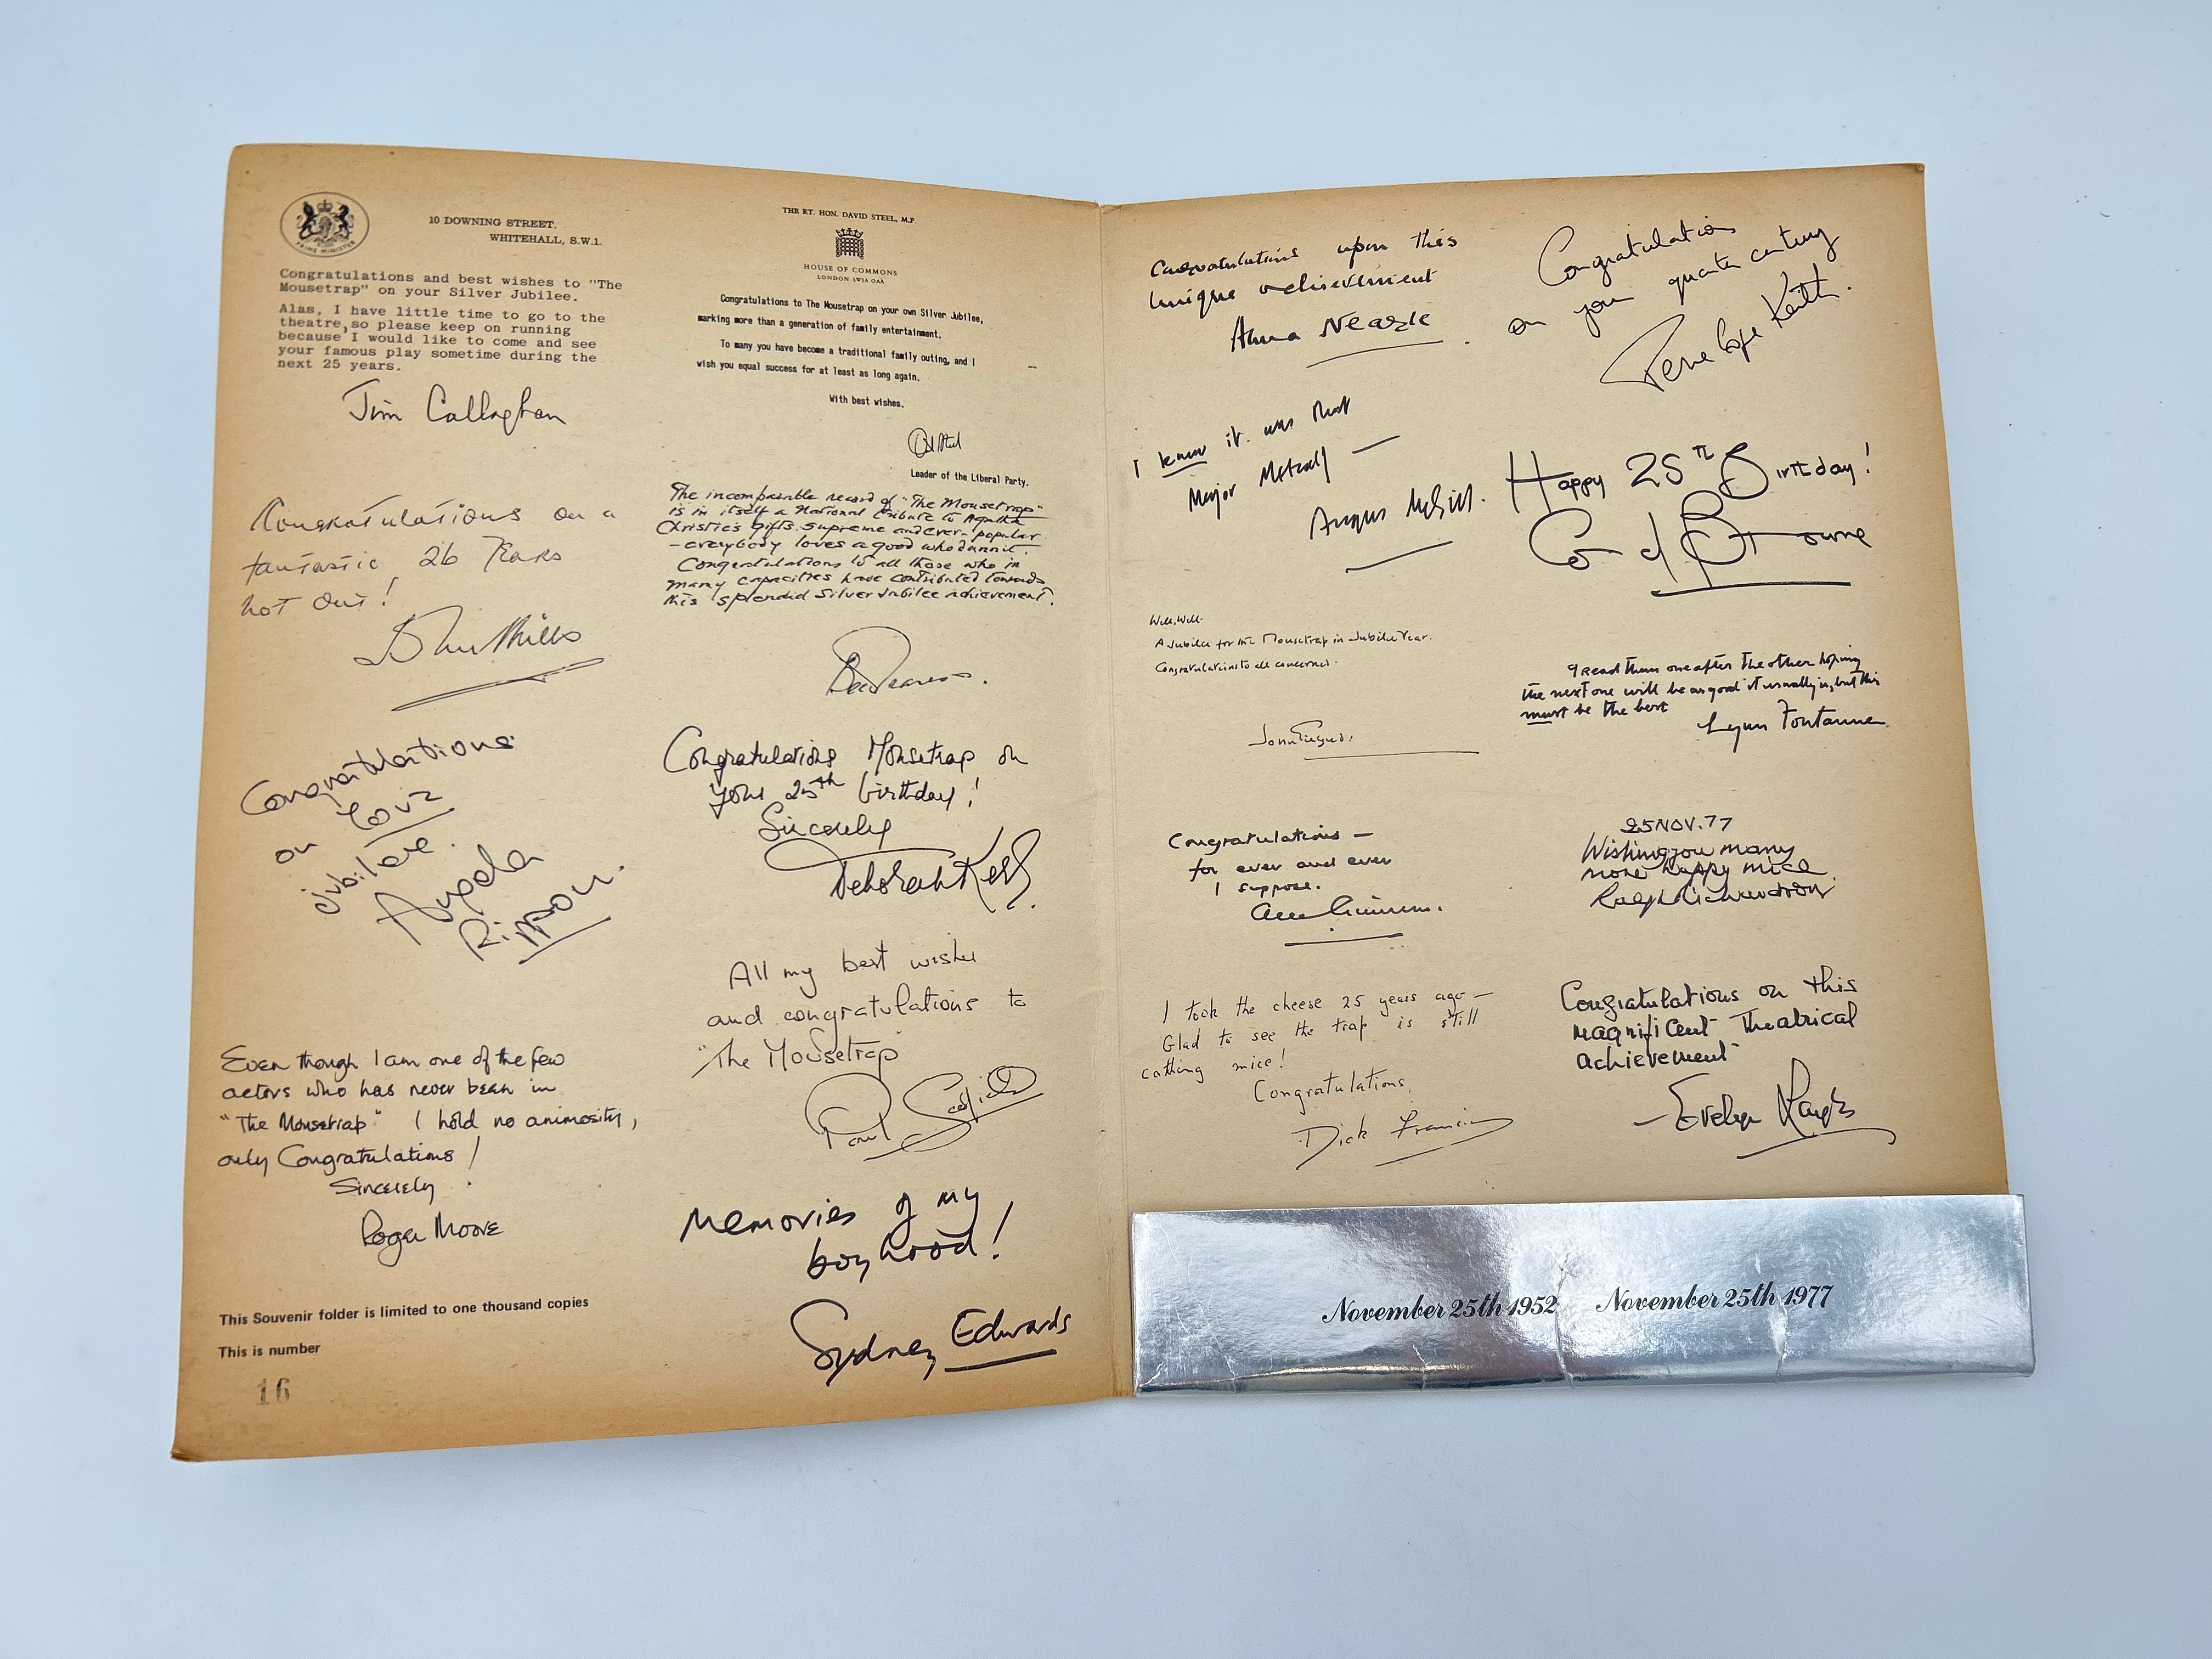 PRIME MINISTER
10 DOWNING STREET.
WHITEHALL, S.W.1.
Congratulations and best wishes to "The
Mousetrap" on your Silver Jubilee.
Alas, I have little time to go to the
theatre, so please keep on running
because I would like to come and see
your famous play sometime during the
next 25 years.
Jim Callaghan
Congratulations on a
fantastic 26 Years
not out!
John Mills
Congratulations
on your
Jubilee.
Angela
Rippon.
Even though I am one of the few
actors who has never been in
"The Mousetrap" I hold no animosity,
only Congratulations!
Sincerely
Roger Moore
This Souvenir folder is limited to one thousand copies
This is number
16
THE RT. HON. DAVID STEEL, M.P.
HOUSE OF COMMONS
LONDON SW1A 0AA
Congratulations to The Mousetrap on your own Silver Jubilee,
marking more than a generation of family entertainment.
To many you have become a traditional family outing, and I
wish you equal success for at least as long again.
With best wishes.
Leader of the Liberal Party.
The incomparable record of "The Mousetrap"
is in itself a National tribute to Agatha
Christie's gifts supreme and ever-popular
- everybody loves a good whodunnit.
Congratulations to all those who in
many capacities have contributed towards
this splendid Silver Jubilee achievement.
Congratulations Mousetrap on
your 25th birthday!
Sincerely
Deborah Kerr
All my best wishes
and congratulations to
"The Mousetrap"
Paul Scofield
Memories of my
boyhood!
Sydney Edwards
Congratulations upon this
unique achievement
Anna Neagle
I know it was that
Major Metcalf —
Angus McGill.
Well, Well.
A Jubilee for the Mousetrap in Jubilee Year.
Congratulations to all concerned.
John Gielgud.
Congratulations —
for ever and ever
I suppose.
Alec Guinness.
I took the cheese 25 years ago —
Glad to see the trap is still
catching mice!
Congratulations,
Dick Francis
Congratulations
on your quarter century
Penelope Keith.
Happy 25th Birthday!
Coral Browne
I read them one after the other hoping
the next one will be as good it usually is, but this
must be the best
Lynn Fontanne
25 NOV. 77
Wishing you many
more happy mice
Ralph Richardson
Congratulations on this
magnificent Theatrical
achievement
— Evelyn Laye
November 25th 1952 November 25th 1977